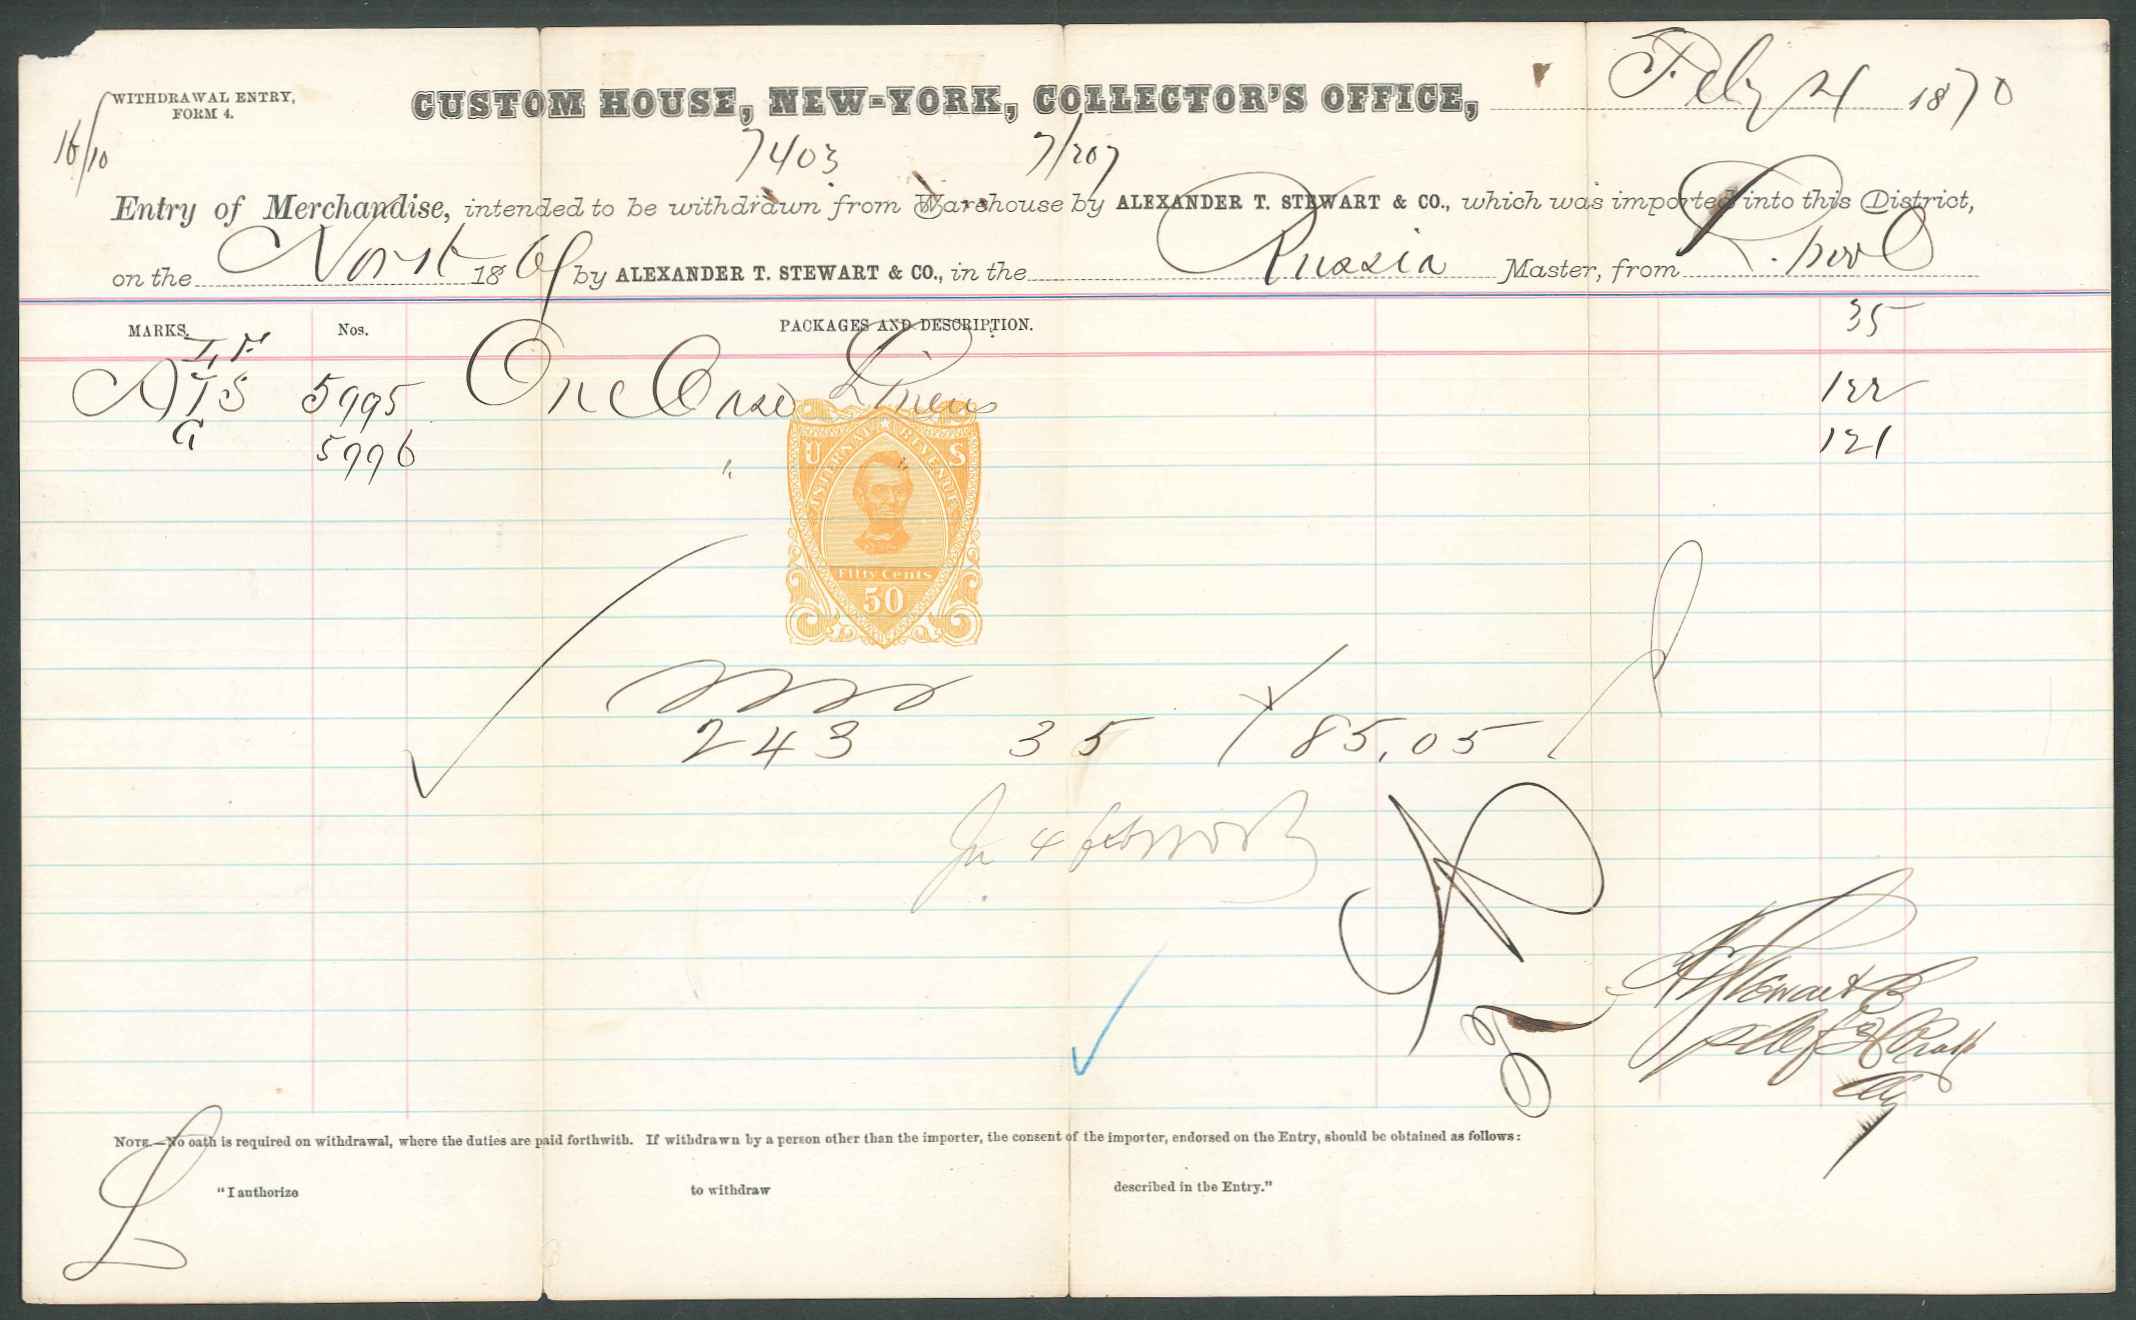 WITHDRAWAL ENTRY,
FORM 4.
CUSTOM HOUSE, NEW-YORK, COLLECTOR'S OFFICE, Feby 4 1870
16/10
7403 7/207
Entry of Merchandise, intended to be withdrawn from Warehouse by ALEXANDER T. STEWART & CO., which was imported into this District,
on the Nov 1869 by ALEXANDER T. STEWART & CO., in the Russia Master, from L.pool
MARKS. Nos. PACKAGES AND DESCRIPTION. 35
ATS 5995 One Case Linens 122
G 5996 " " 121
U S
INTERNAL REVENUE
Fifty Cents
50
243 35 85.05
A T Stewart
Atty
NOTE.—No oath is required on withdrawal, where the duties are paid forthwith. If withdrawn by a person other than the importer, the consent of the importer, endorsed on the Entry, should be obtained as follows:
"I authorize to withdraw described in the Entry."